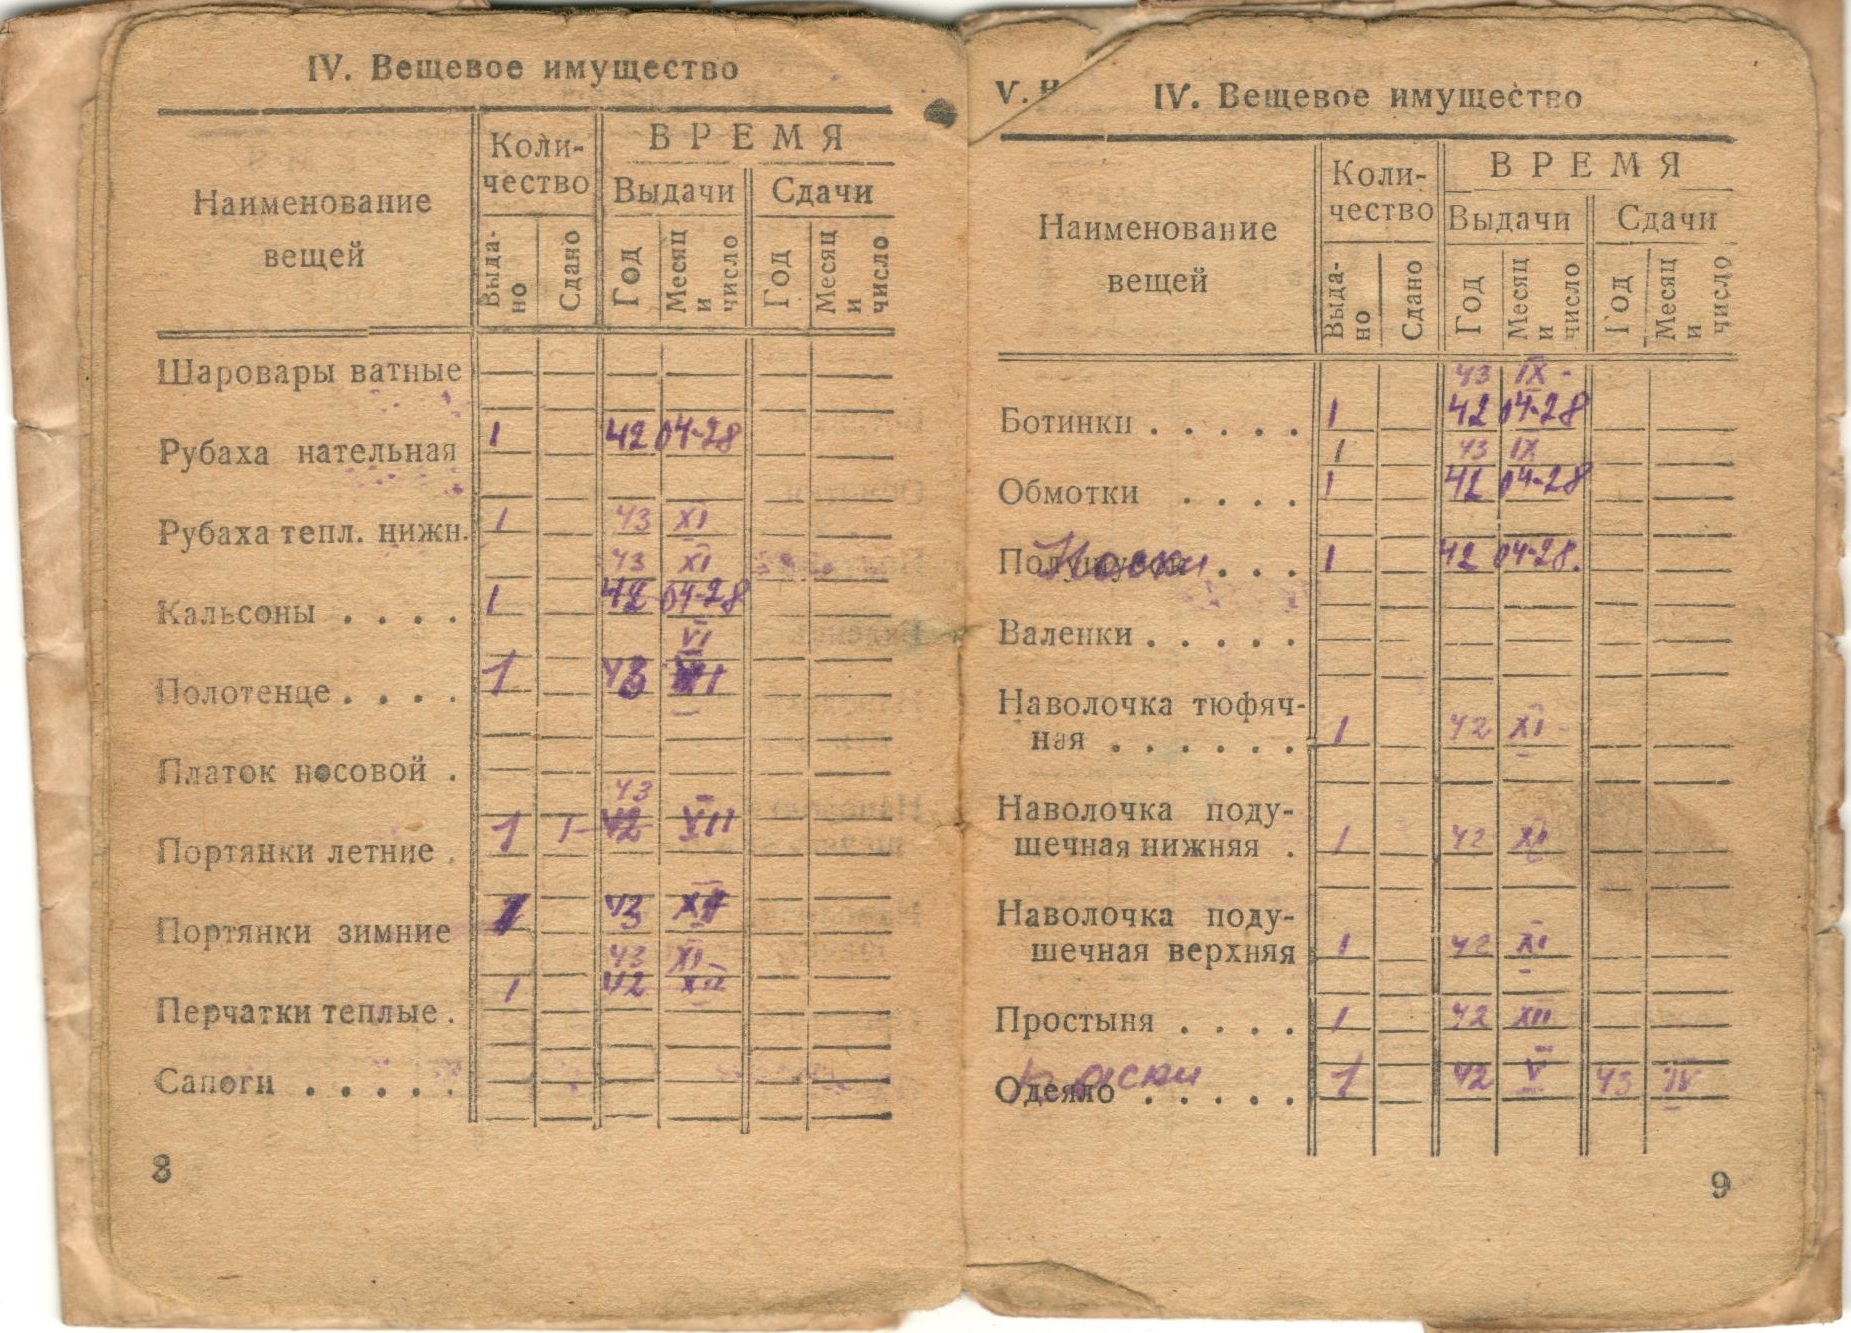 IV. Вещевое имущество
Наименование вещей
Коли-
чество
ВРЕМЯ
Выдачи
Сдачи
Выда-
но
Сдано
Год
Месяц
и
число
Год
Месяц
и
число
Шаровары ватные
Рубаха нательная 1 42 04-28
Рубаха тепл. нижн. 1 43 XI
43 XI
Кальсоны . . . . 1 42 04-28
VI
Полотенце . . . . 1 43
Платок носовой .
43
Портянки летние . 1 1 42 VII
Портянки зимние 1 43 XI
43 XI
Перчатки теплые . 1 42 XII
Сапоги . . . . .
8
V. В
IV. Вещевое имущество
Наименование
вещей
Коли-
чество
ВРЕМЯ
Выдачи
Сдачи
Выда-
но
Сдано
Год
Месяц
и
число
Год
Месяц
и
число
43 IX -
Ботинки . . . . . 1 42 04-28
1 43 IX
Обмотки . . . . 1 42 04-28
Носки . . . 1 42 04-28.
Валенки . . . . .
Наволочка тюфяч-
ная . . . . . . 1 42 XI
Наволочка поду-
шечная нижняя . 1 42 XI
Наволочка поду-
шечная верхняя 1 42 XI
Простыня . . . . 1 42 XII
Одеяло . . . . . 1 42 V 43 IV
9